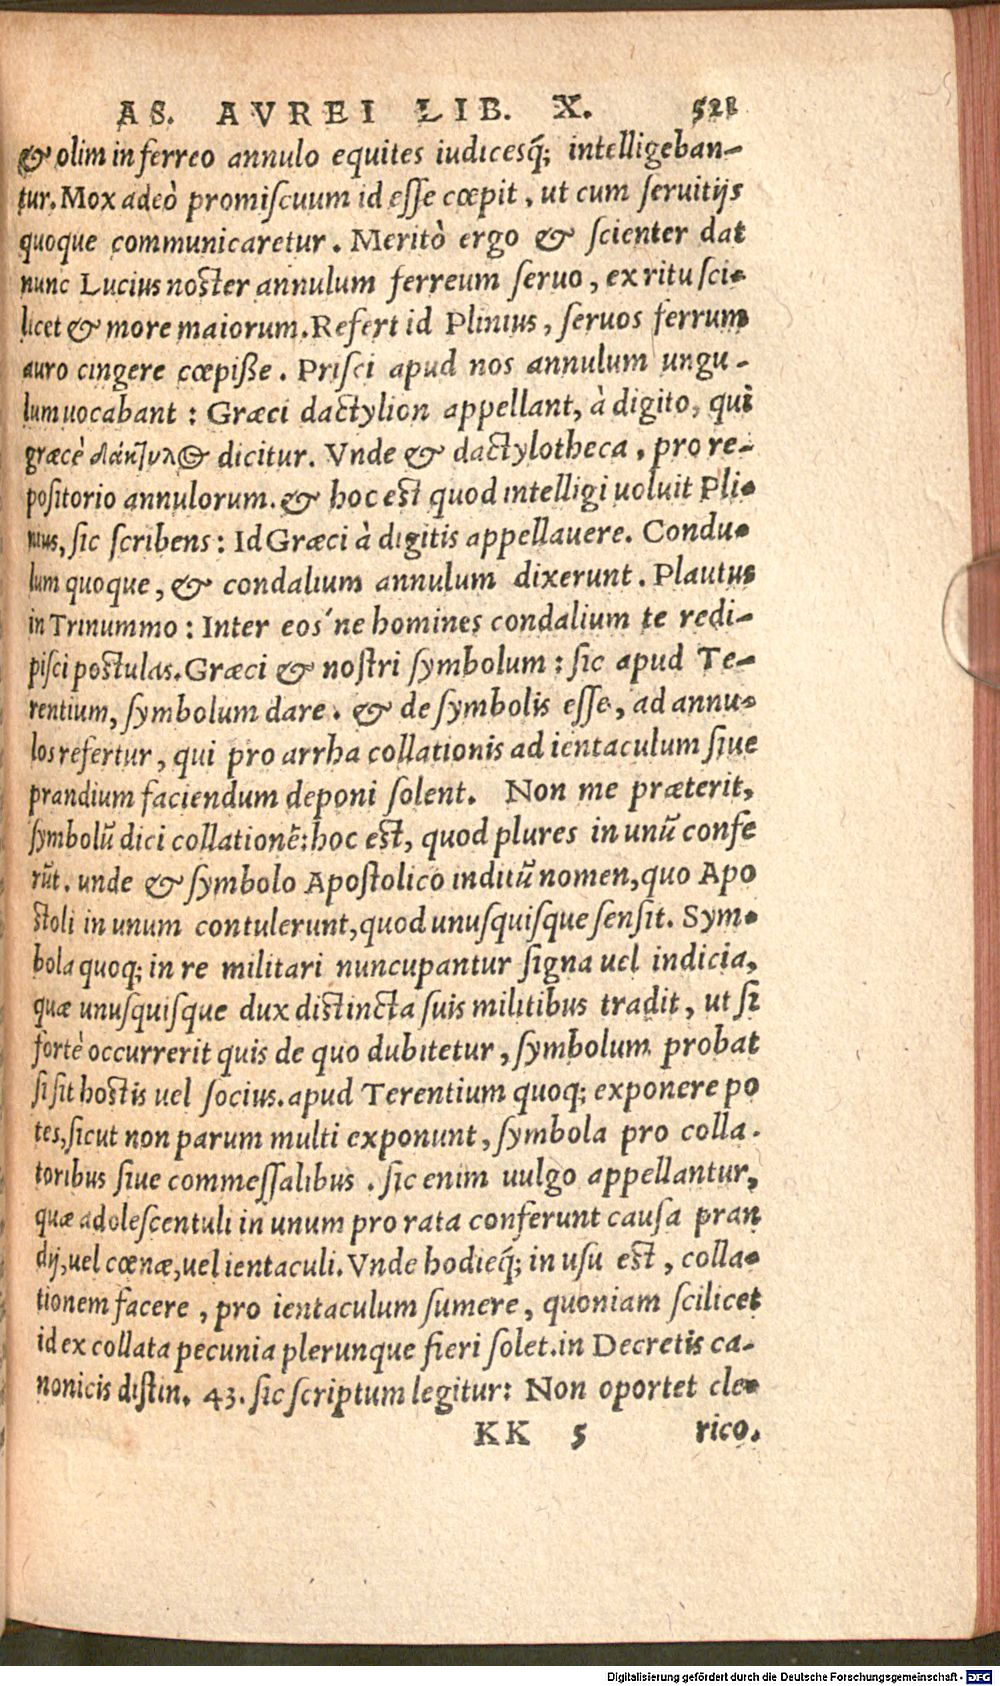 AS. AVREI LIB. X. 521
& olim in ferreo annulo equites iudicesq́; intelligeban-
tur. Mox adeò promiſcuum id eſſe cœpit, ut cum ſeruitijs
quoque communicaretur. Meritò ergo & ſcienter dat
nunc Lucius noſter annulum ferreum ſeruo, ex ritu ſci-
licet & more maiorum. Refert id Plinius, ſeruos ferrum
auro cingere cœpiſſe. Priſci apud nos annulum ungu-
lum uocabant: Græci dactylion appellant, à digito, qui
græcè δάκτυλ⊕ dicitur. Vnde & dactylotheca, pro re-
poſitorio annulorum. & hoc eſt quod intelligi uoluit Pli-
nius, ſic ſcribens: Id Græci à digitis appellauere. Condu-
lum quoque, & condalium annulum dixerunt. Plautus
in Trinummo: Inter eos'ne homines condalium te redi-
piſci poſtulas. Græci & noſtri ſymbolum: ſic apud Te-
rentium, ſymbolum dare. & de ſymbolis eſſe, ad annu-
los refertur, qui pro arrha collationis ad ientaculum ſiue
prandium faciendum deponi ſolent. Non me præterit,
ſymbolū dici collationē: hoc eſt, quod plures in unū confe
rūt. unde & ſymbolo Apoſtolico inditū nomen, quo Apo
ſtoli in unum contulerunt, quod unuſquiſque ſenſit. Sym-
bola quoq; in re militari nuncupantur ſigna uel indicia,
quæ unuſquiſque dux diſtincta ſuis militibus tradit, ut ſi
fortè occurrerit quis de quo dubitetur, ſymbolum probat
ſi ſit hoſtis uel ſocius. apud Terentium quoq; exponere po
tes, ſicut non parum multi exponunt, ſymbola pro colla-
toribus ſiue commeſſalibus. ſic enim uulgo appellantur,
quæ adoleſcentuli in unum pro rata conferunt cauſa pran
dij, uel cœnæ, uel ientaculi. Vnde hodieq́; in uſu eſt, colla-
tionem facere, pro ientaculum ſumere, quoniam ſcilicet
id ex collata pecunia plerunque fieri ſolet. in Decretis ca-
nonicis diſtin. 43. ſic ſcriptum legitur: Non oportet cle-
KK 5 rico.
Digitalisierung gefördert durch die Deutsche Forschungsgemeinschaft - DFG